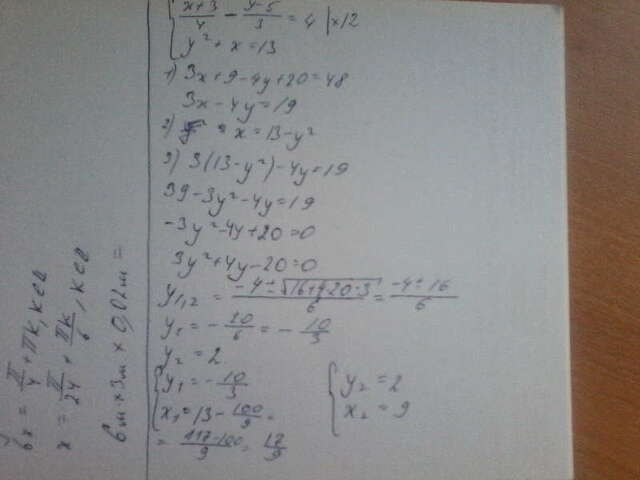 { (x+3)/4 - (y-5)/3 = 4 |×12
{ y² + x = 13
1) 3x+9-4y+20=48
3x-4y=19
2) x = 13-y²
3) 3(13-y²)-4y=19
39-3y²-4y=19
-3y²-4y+20=0
3y²+4y-20=0
y₁,₂ = (-4±√(16+4·20·3))/6 = (-4±16)/6
y₁ = -20/6 = -10/3
y₂ = 2
{ y₁ = -10/3
{ x₁ = 13 - 100/9 =
= (117-100)/9 = 17/9
{ y₂ = 2
{ x₂ = 9
6x = π/4 + πk, k∈Z
x = π/24 + πk/6, k∈Z
6м × 3м × 0,02м =